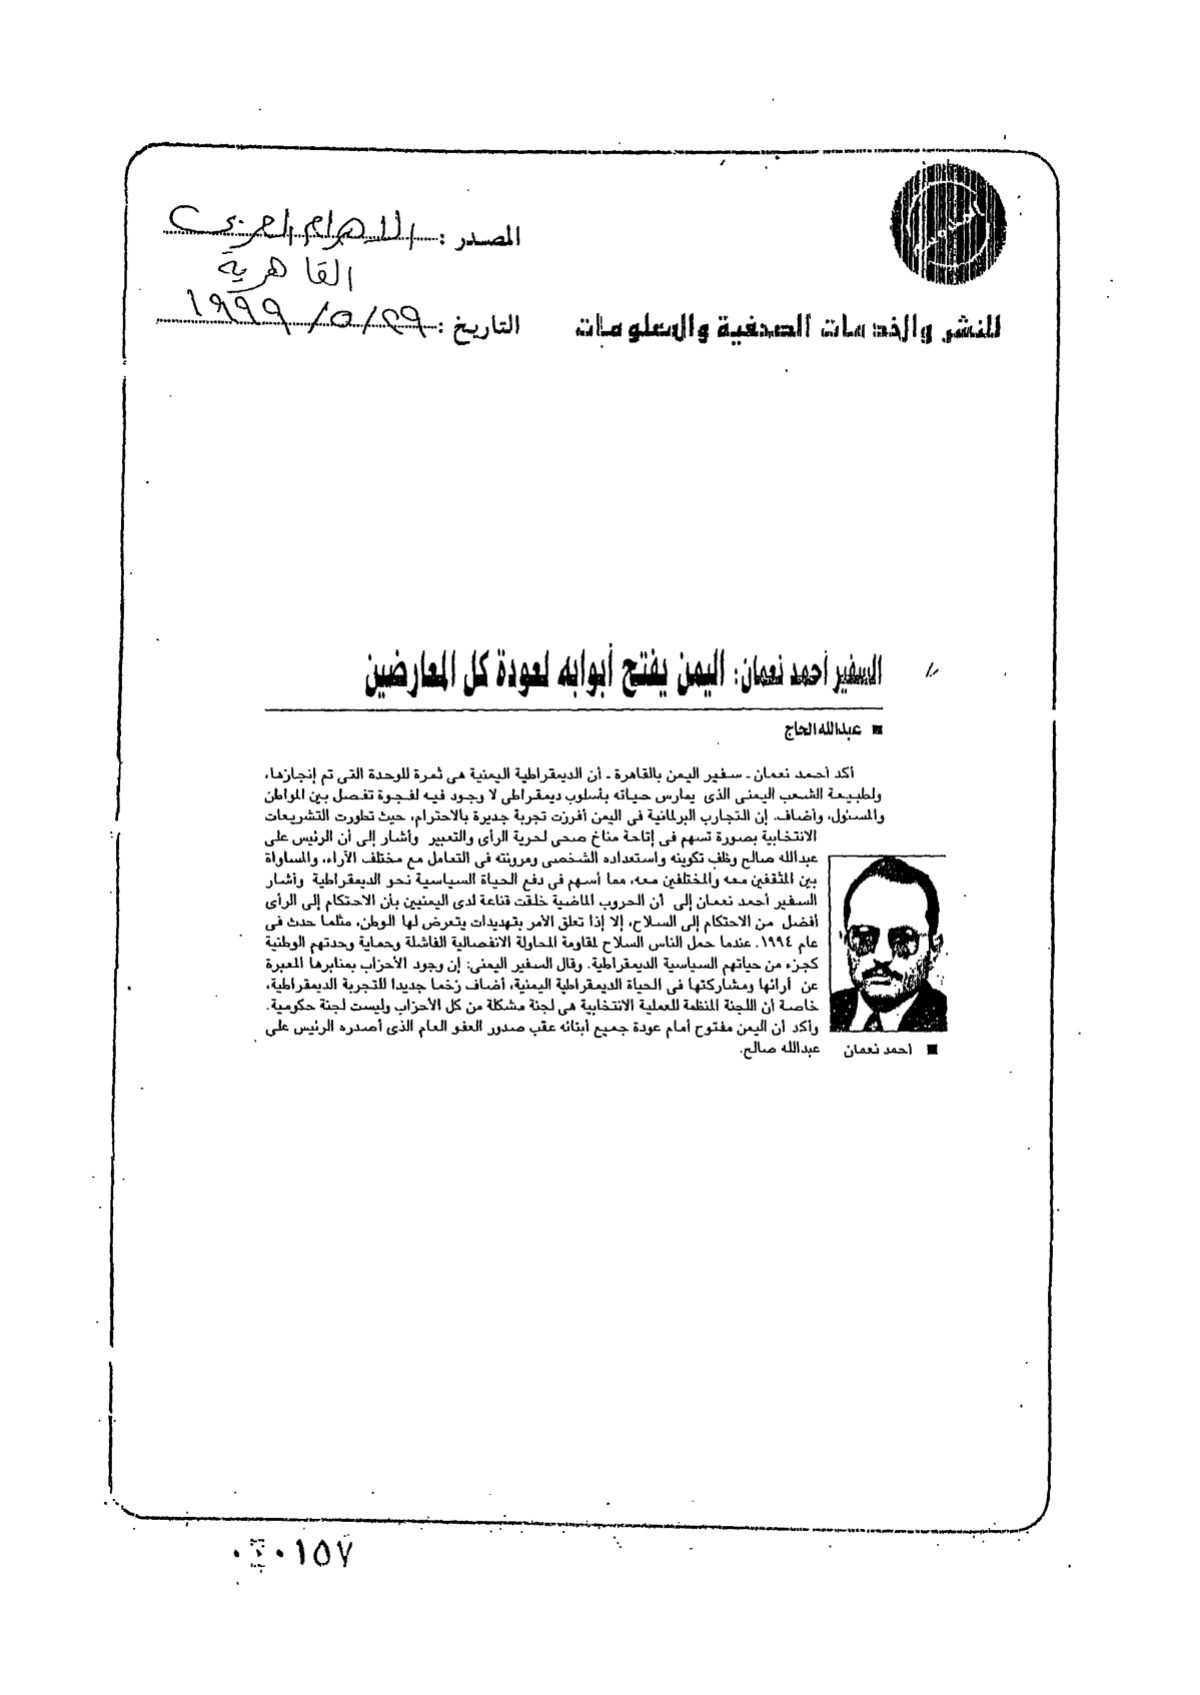 المصدر : الاهرام العربى
القاهرية
للنشر والخدمات الصحفية والمعلومات
التاريخ : ٢٩ / ٥ / ١٩٩٩
السفير أحمد نعمان: اليمن يفتح أبوابه لعودة كل المعارضين
■ عبدالله الحاج
أكد أحمد نعمان ـ سفير اليمن بالقاهرة ـ أن الديمقراطية اليمنية هى ثمرة للوحدة التى تم إنجازها،
ولطبيعة الشعب اليمنى الذى يمارس حياته بأسلوب ديمقراطى لا وجود فيه لفجوة تفصل بين المواطن
والمسئول، وأضاف. إن التجارب البرلمانية فى اليمن أفرزت تجربة جديرة بالاحترام، حيث تطورت التشريعات
الانتخابية بصورة تسهم فى إتاحة مناخ صحى لحرية الرأى والتعبير وأشار إلى أن الرئيس على
عبدالله صالح وظف تكوينه واستعداده الشخصى ومرونته فى التعامل مع مختلف الآراء، والمساواة
بين المثقفين معه والمختلفين معه، مما أسهم فى دفع الحياة السياسية نحو الديمقراطية وأشار
السفير أحمد نعمان إلى أن الحروب الماضية خلقت قناعة لدى اليمنيين بأن الاحتكام إلى الرأى
أفضل من الاحتكام إلى السلاح، إلا إذا تعلق الأمر بتهديدات يتعرض لها الوطن، مثلما حدث فى
عام ١٩٩٤. عندما حمل الناس السلاح لمقاومة المحاولة الانفصالية الفاشلة وحماية وحدتهم الوطنية
كجزء من حياتهم السياسية الديمقراطية. وقال السفير اليمنى: إن وجود الأحزاب بمنابرها المعبرة
عن آرائها ومشاركتها فى الحياة الديمقراطية اليمنية، أضاف زخما جديدا للتجربة الديمقراطية،
خاصة أن اللجنة المنظمة للعملية الانتخابية هى لجنة مشكلة من كل الأحزاب وليست لجنة حكومية.
وأكد أن اليمن مفتوح أمام عودة جميع أبنائه عقب صدور العفو العام الذى أصدره الرئيس على
عبدالله صالح.
■ أحمد نعمان
٠١٥٧